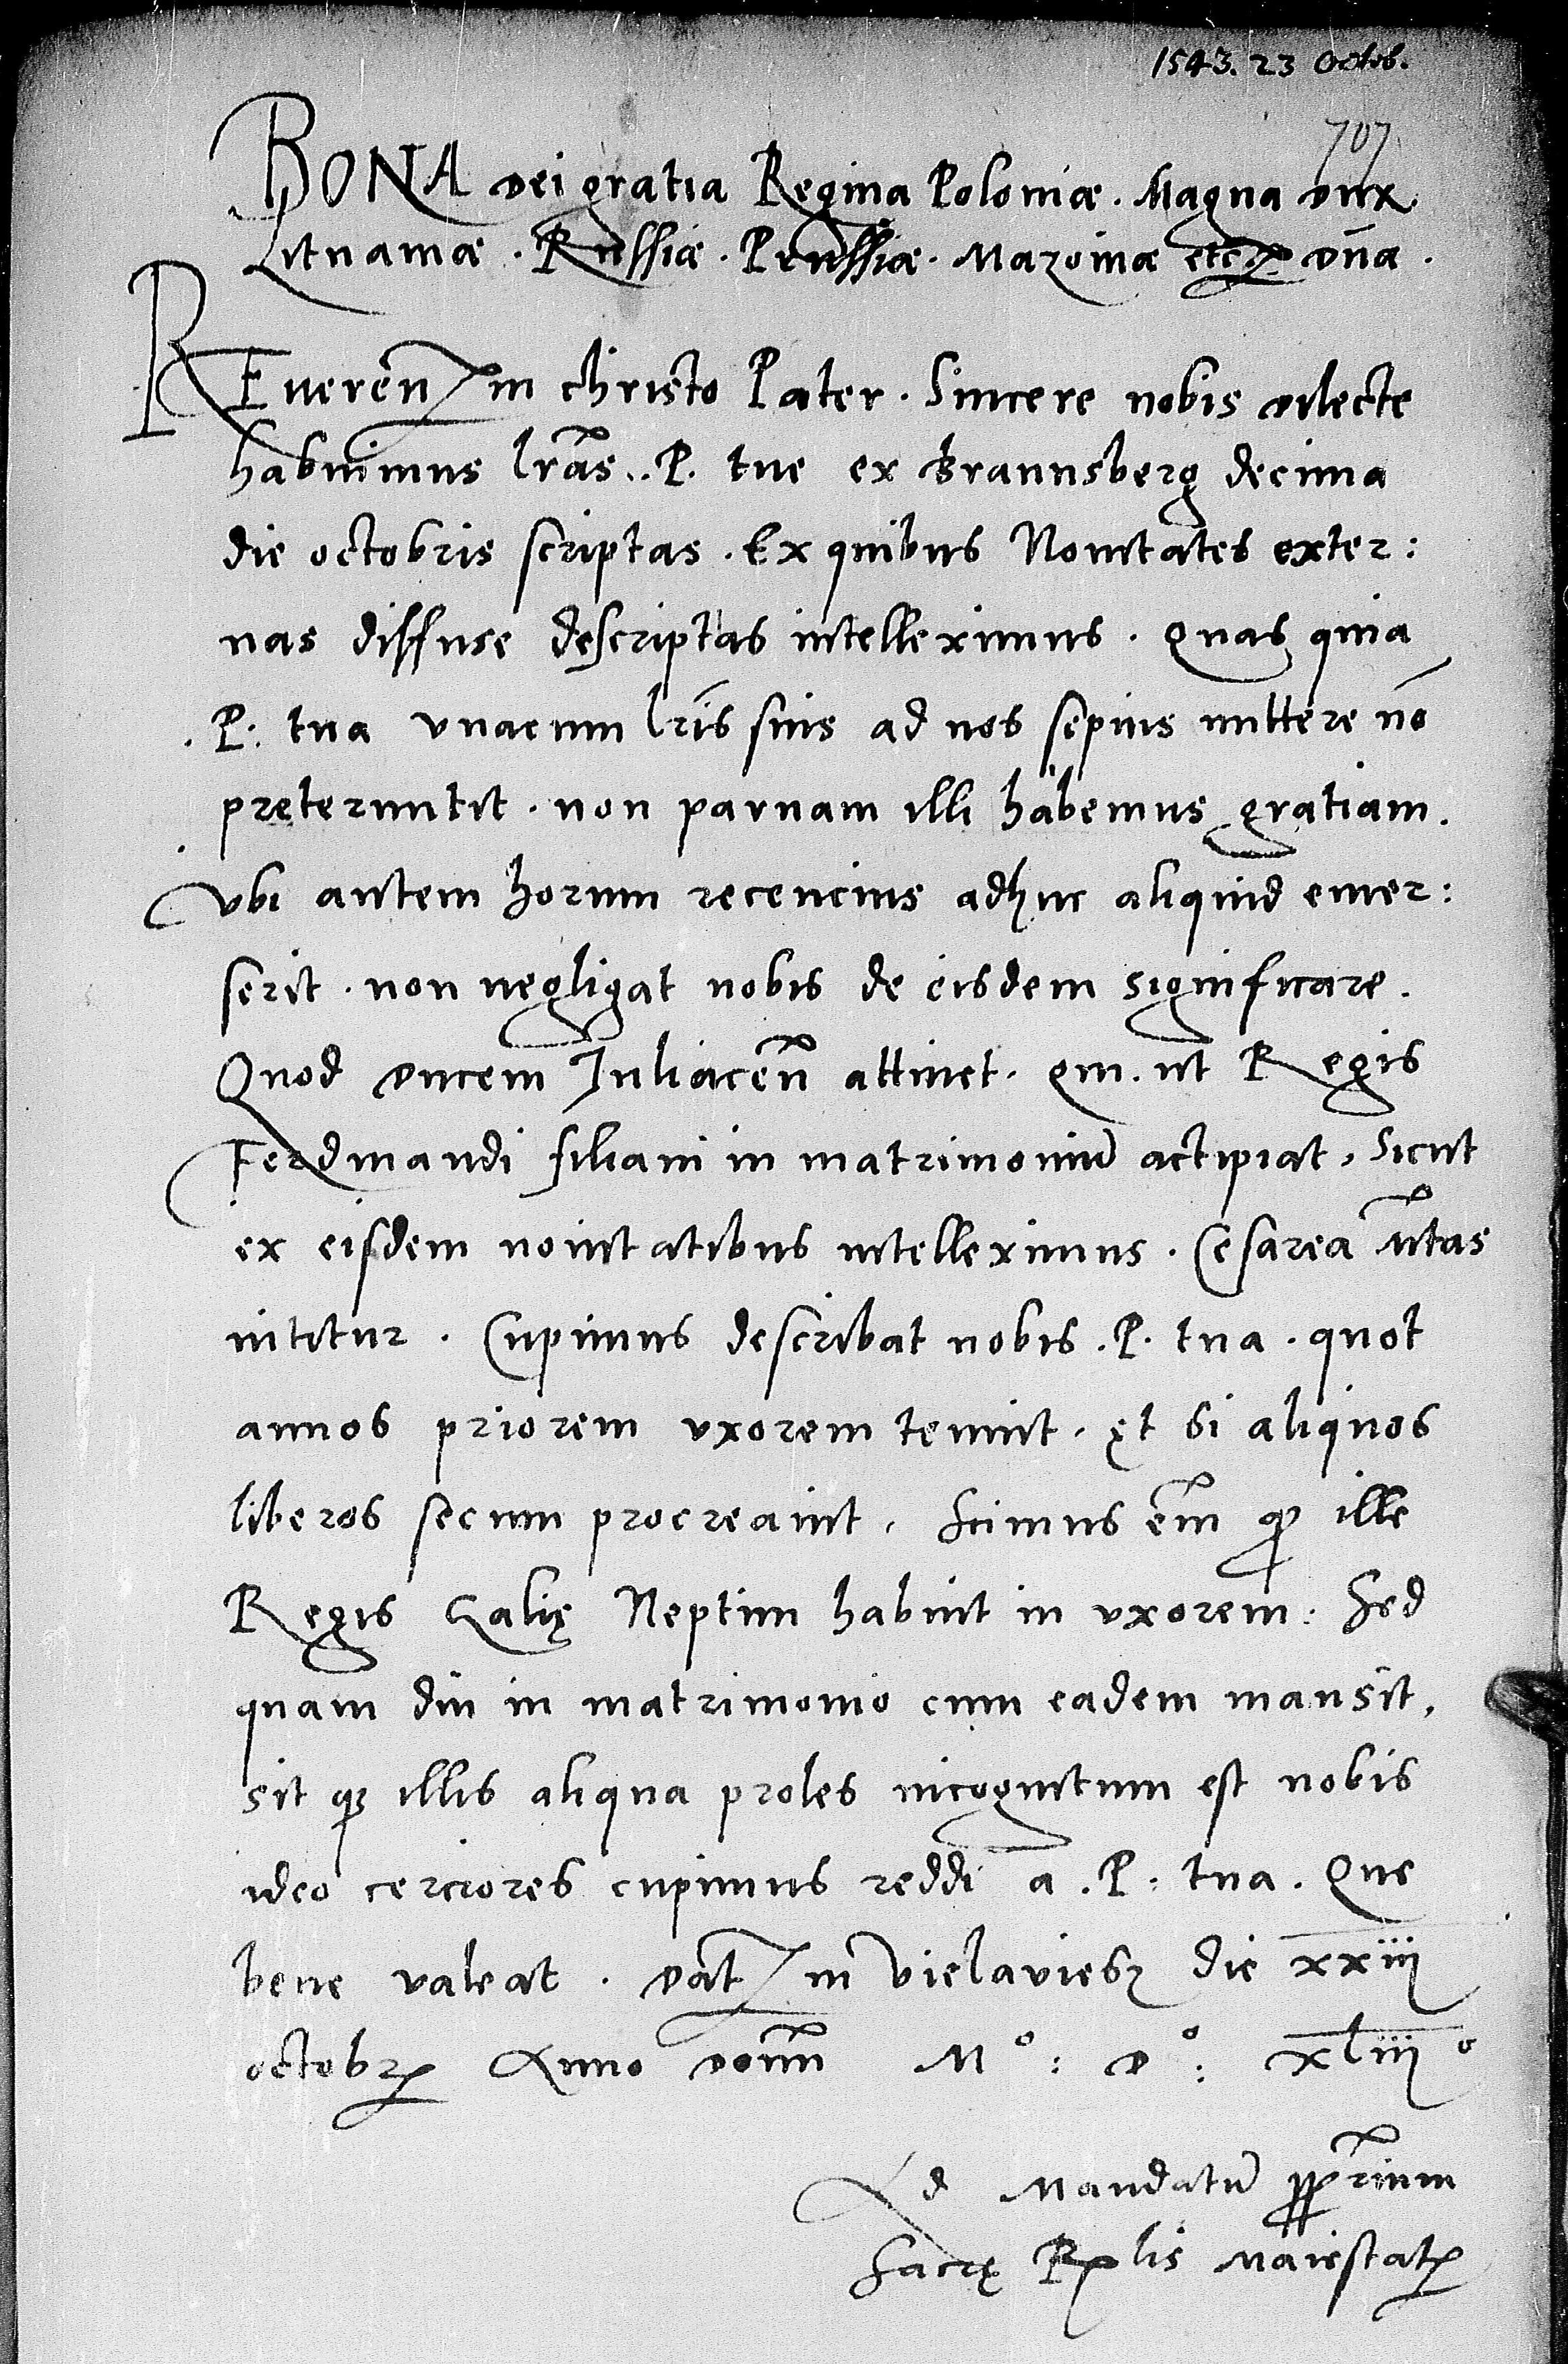 1543. 23 Octob.
707
BONA dei gratia Regina Poloniæ. Magna dux
Lituaniæ. Russiæ. Prussiæ. Mazoviæ etc. dña.
REuerēn in christo Pater. Sincere nobis dilecte
habuimus lrās. P. tue ex Braunsberg decima
die octobris scriptas. Ex quibus Nouitates exter:
nas diffuse descriptas intelleximus. Quas quia
.P. tua vnacum lrīs suis ad nos sepius mittere nō
pretermittit. non paruam illi habemus gratiam.
vbi autem horum recencius adhuc aliquid emer:
serit. non negligat nobis de eisdem significare.
Quod ducem Juliaceñ attinet. qui. ut Regis
Ferdinandi filiam in matrimoniū accipiat, sicut
ex eisdem nouitatibus intelleximus. Cesarea Mtās
nititur. Cupimus describat nobis. P. tua. quot
annos priorem vxorem tenuit. et si aliquos
liberos secum procreauit. scimus em̄ qđ ille
Regis Galię Neptim habuit in vxorem: sed
quam diu in matrimonio cum eadem mansit,
sit qȝ illis aliqua proles incognitum est nobis
ideo cerciores cupimus reddi a. P: tua. Que
bene valeat. dat in vielaviesz die xxiij
octobr Anno domi M°: D°: xliij°
Ad Mandatū ppriūm
sacrę Rlis Maiestat